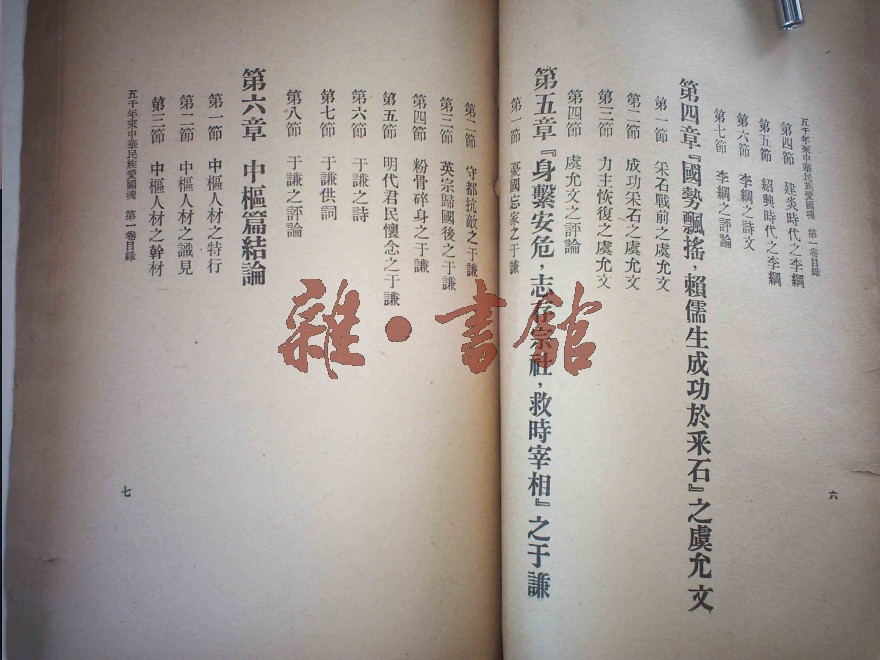 五千年來中華民族愛國魂　第一卷目錄
第四節　建炎時代之李綱
第五節　紹興時代之李綱
第六節　李綱之詩文
第七節　李綱之評論
第四章『國勢飄搖，賴儒生成功於采石』之虞允文
第一節　采石戰前之虞允文
第二節　成功采石之虞允文
第三節　力主恢復之虞允文
第四節　虞允文之評論
第五章『身繫安危，志存宗社，救時宰相』之于謙
第一節　憂國忘家之于謙
六
第二節　守都抗敵之于謙
第三節　英宗歸國後之于謙
第四節　粉骨碎身之于謙
第五節　明代君民懷念之于謙
第六節　于謙之詩
第七節　于謙供詞
第八節　于謙之評論
第六章　中樞篇結論
第一節　中樞人材之特行
第二節　中樞人材之識見
第三節　中樞人材之幹材
五千年來中華民族愛國魂　第一卷目錄
七
雜·書館